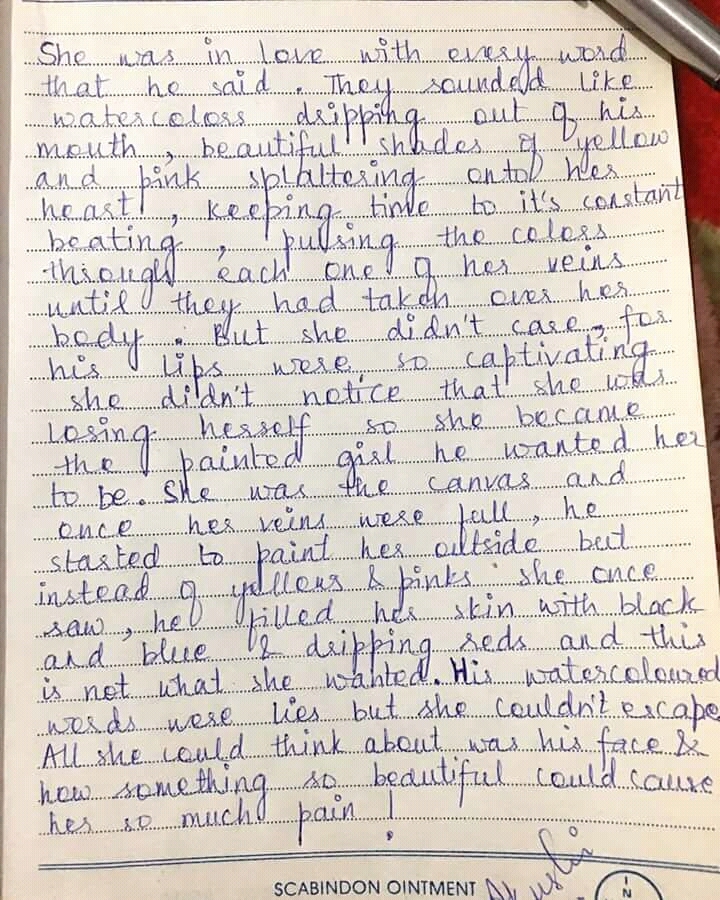 She was in love with every word
that he said. They sounded like
watercolors dripping out of his
mouth, beautiful shades of yellow
and pink splattering onto her
heart, keeping time to it's constant
beating, pulsing the colors
through each one of her veins
until they had taken over her
body. But she didn't care, for
his lips were so captivating
she didn't notice that she was
losing herself so she became
the painted girl he wanted her
to be. She was the canvas and
once her veins were full, he
started to paint her outside but
instead of yellows & pinks she once
saw, he filled her skin with black
and blue & dripping reds and this
is not what she wanted. His watercoloured
words were lies but she couldn't escape
All she could think about was his face &
how something so beautiful could cause
her so much pain!
SCABINDON OINTMENT
IN